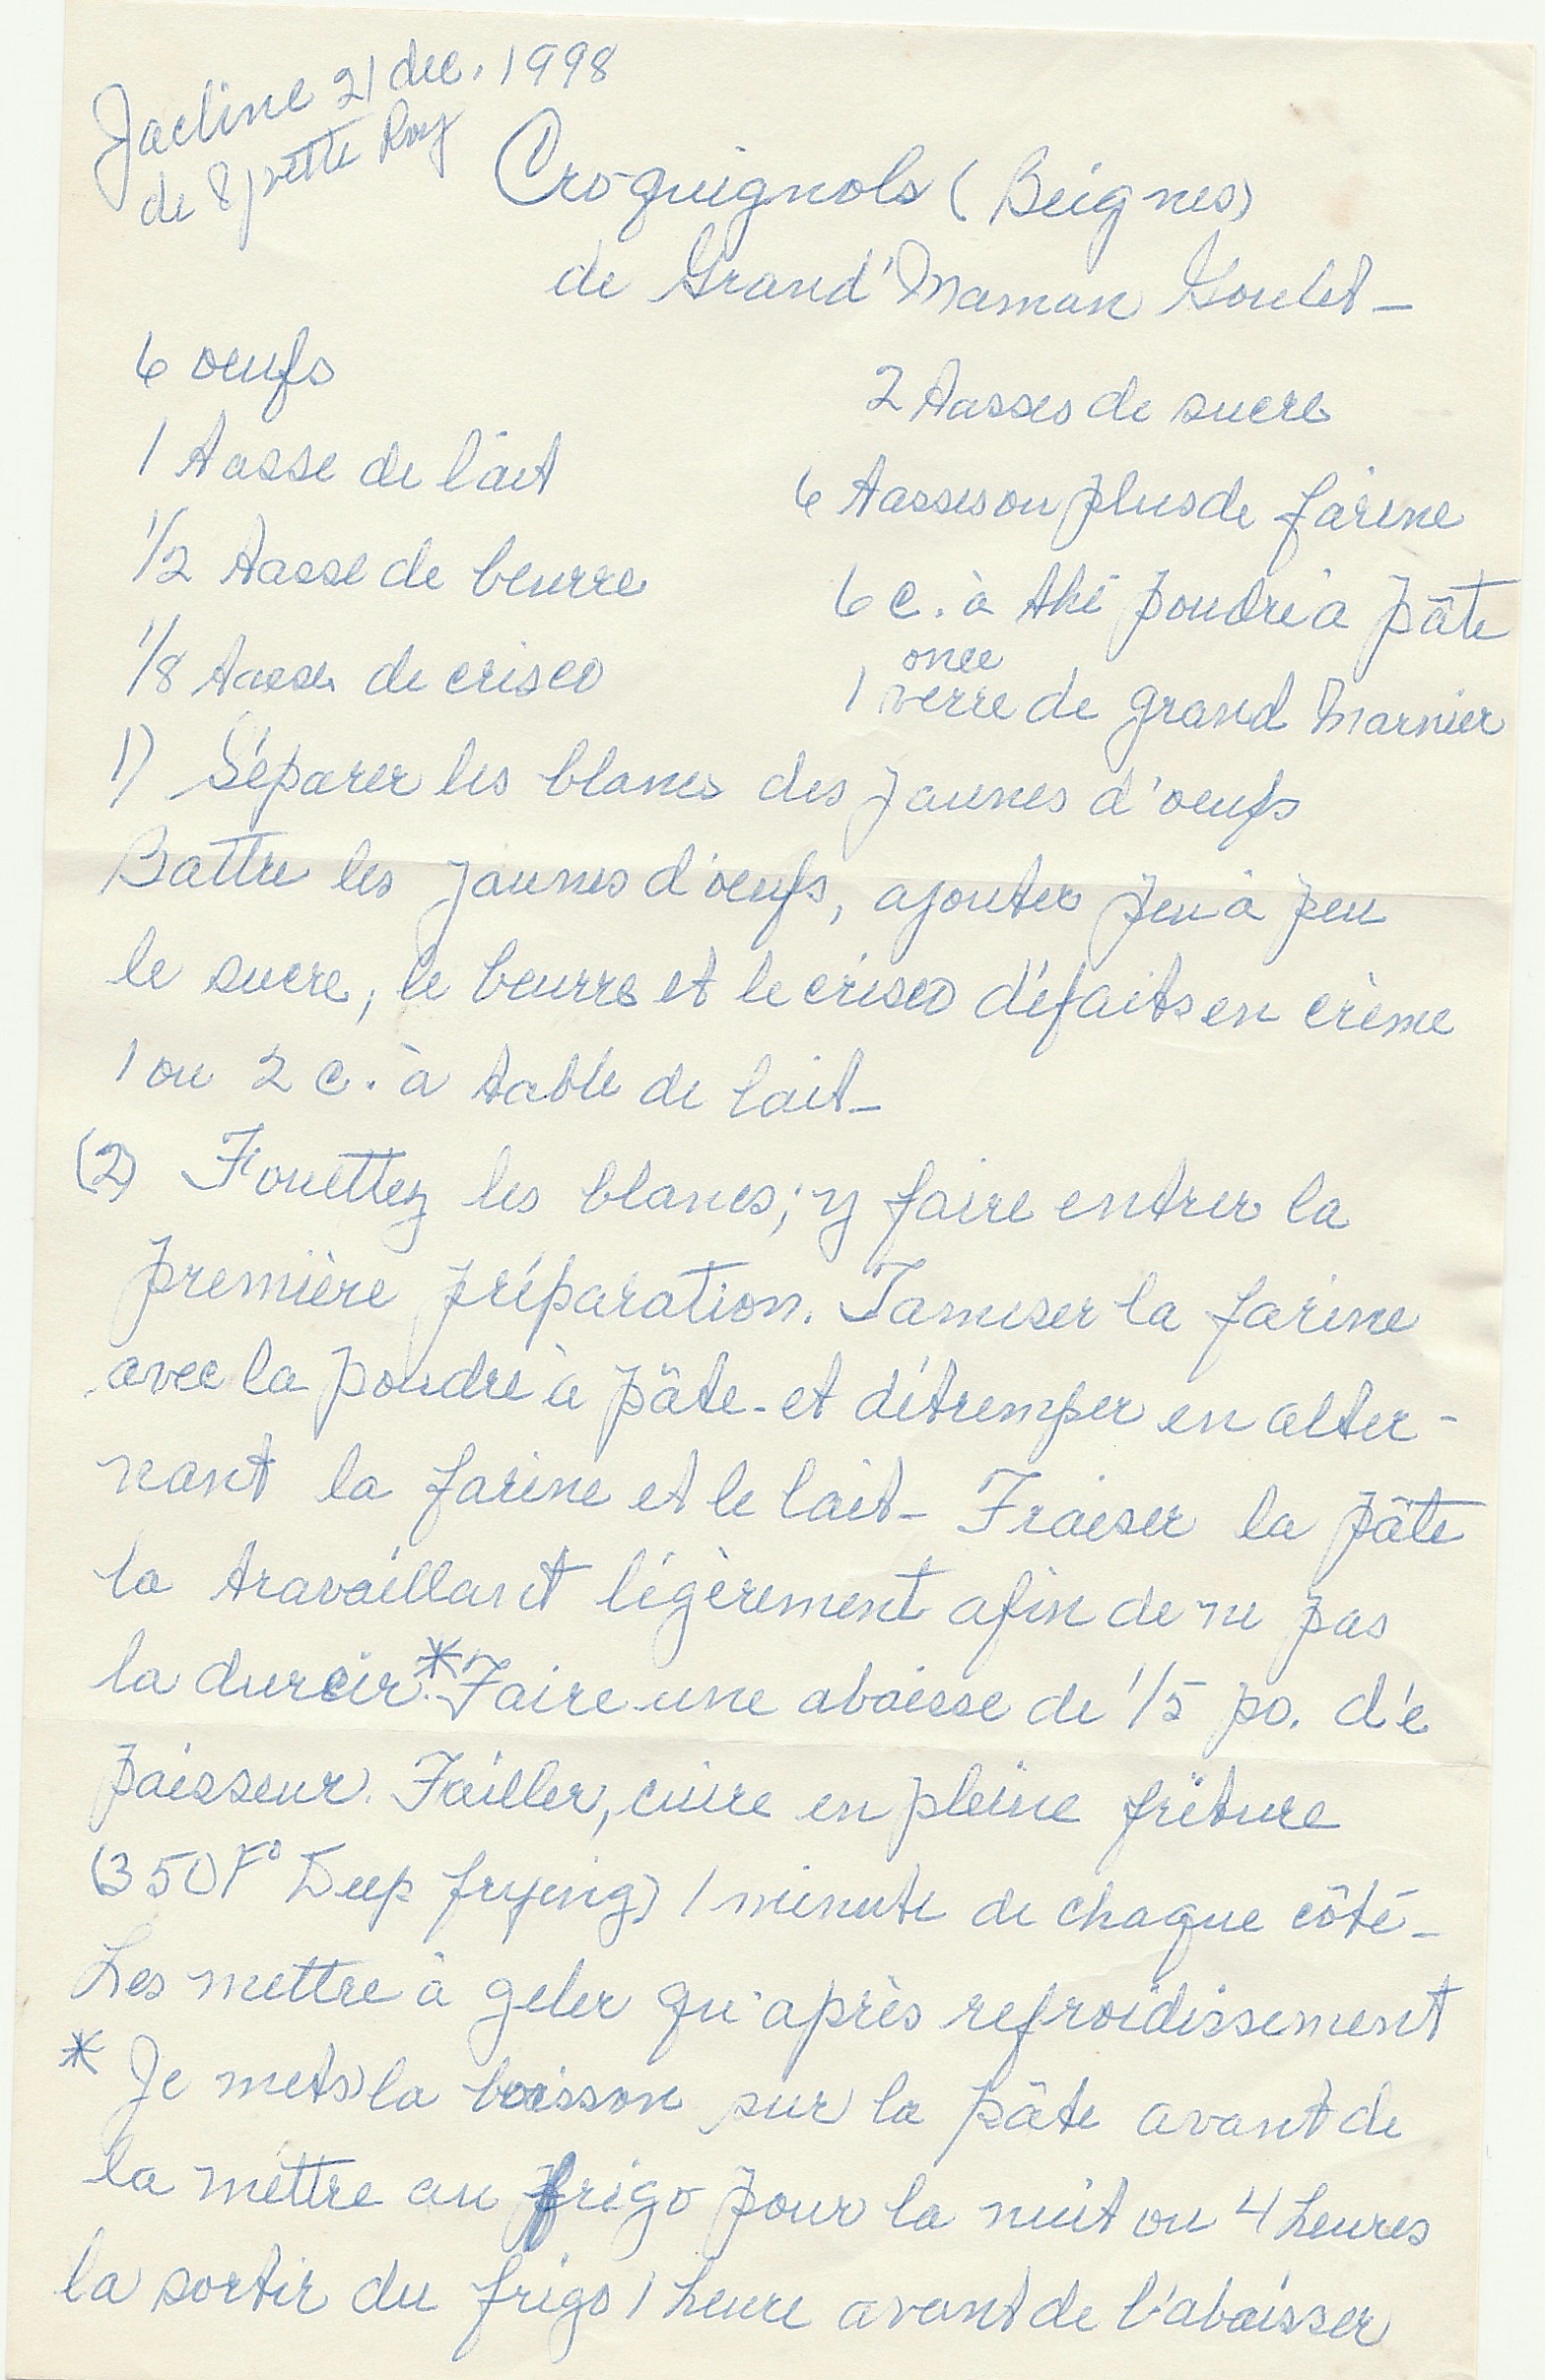 Jacline 21 dec. 1998
de Roy
Croquignols (Beignes)
de Grand'Maman Goulet -
6 oeufs
2 tasses de sucre
1 tasse de lait
6 tasses ou plus de farine
1/2 tasse de beurre
6 c. à thé poudre à pâte
1/8 tasse de crisco
once
1 verre de grand Marnier
1) Séparer les blancs des jaunes d'oeufs
Battre les jaunes d'oeufs, ajouter peu à peu
le sucre, le beurre et le crisco défaits en crème
1 ou 2 c. à table de lait -
(2) Fouettez les blancs; y faire entrer la
première préparation. Tamiser la farine
avec la poudre à pâte - et détremper en alter-
nant la farine et le lait - Fraiser la pâte
la travaillant légèrement afin de ne pas
la durcir.* Faire une abaisse de 1/5 po. d'é
paisseur. Tailler, cuire en pleine friture
(350 F° Deep frying) 1 minute de chaque côté -
Les mettre à geler qu'après refroidissement
* Je mets la boisson sur la pâte avant de
la mettre au frigo pour la nuit ou 4 heures
la sortir du frigo 1 heure avant de l'abaisser